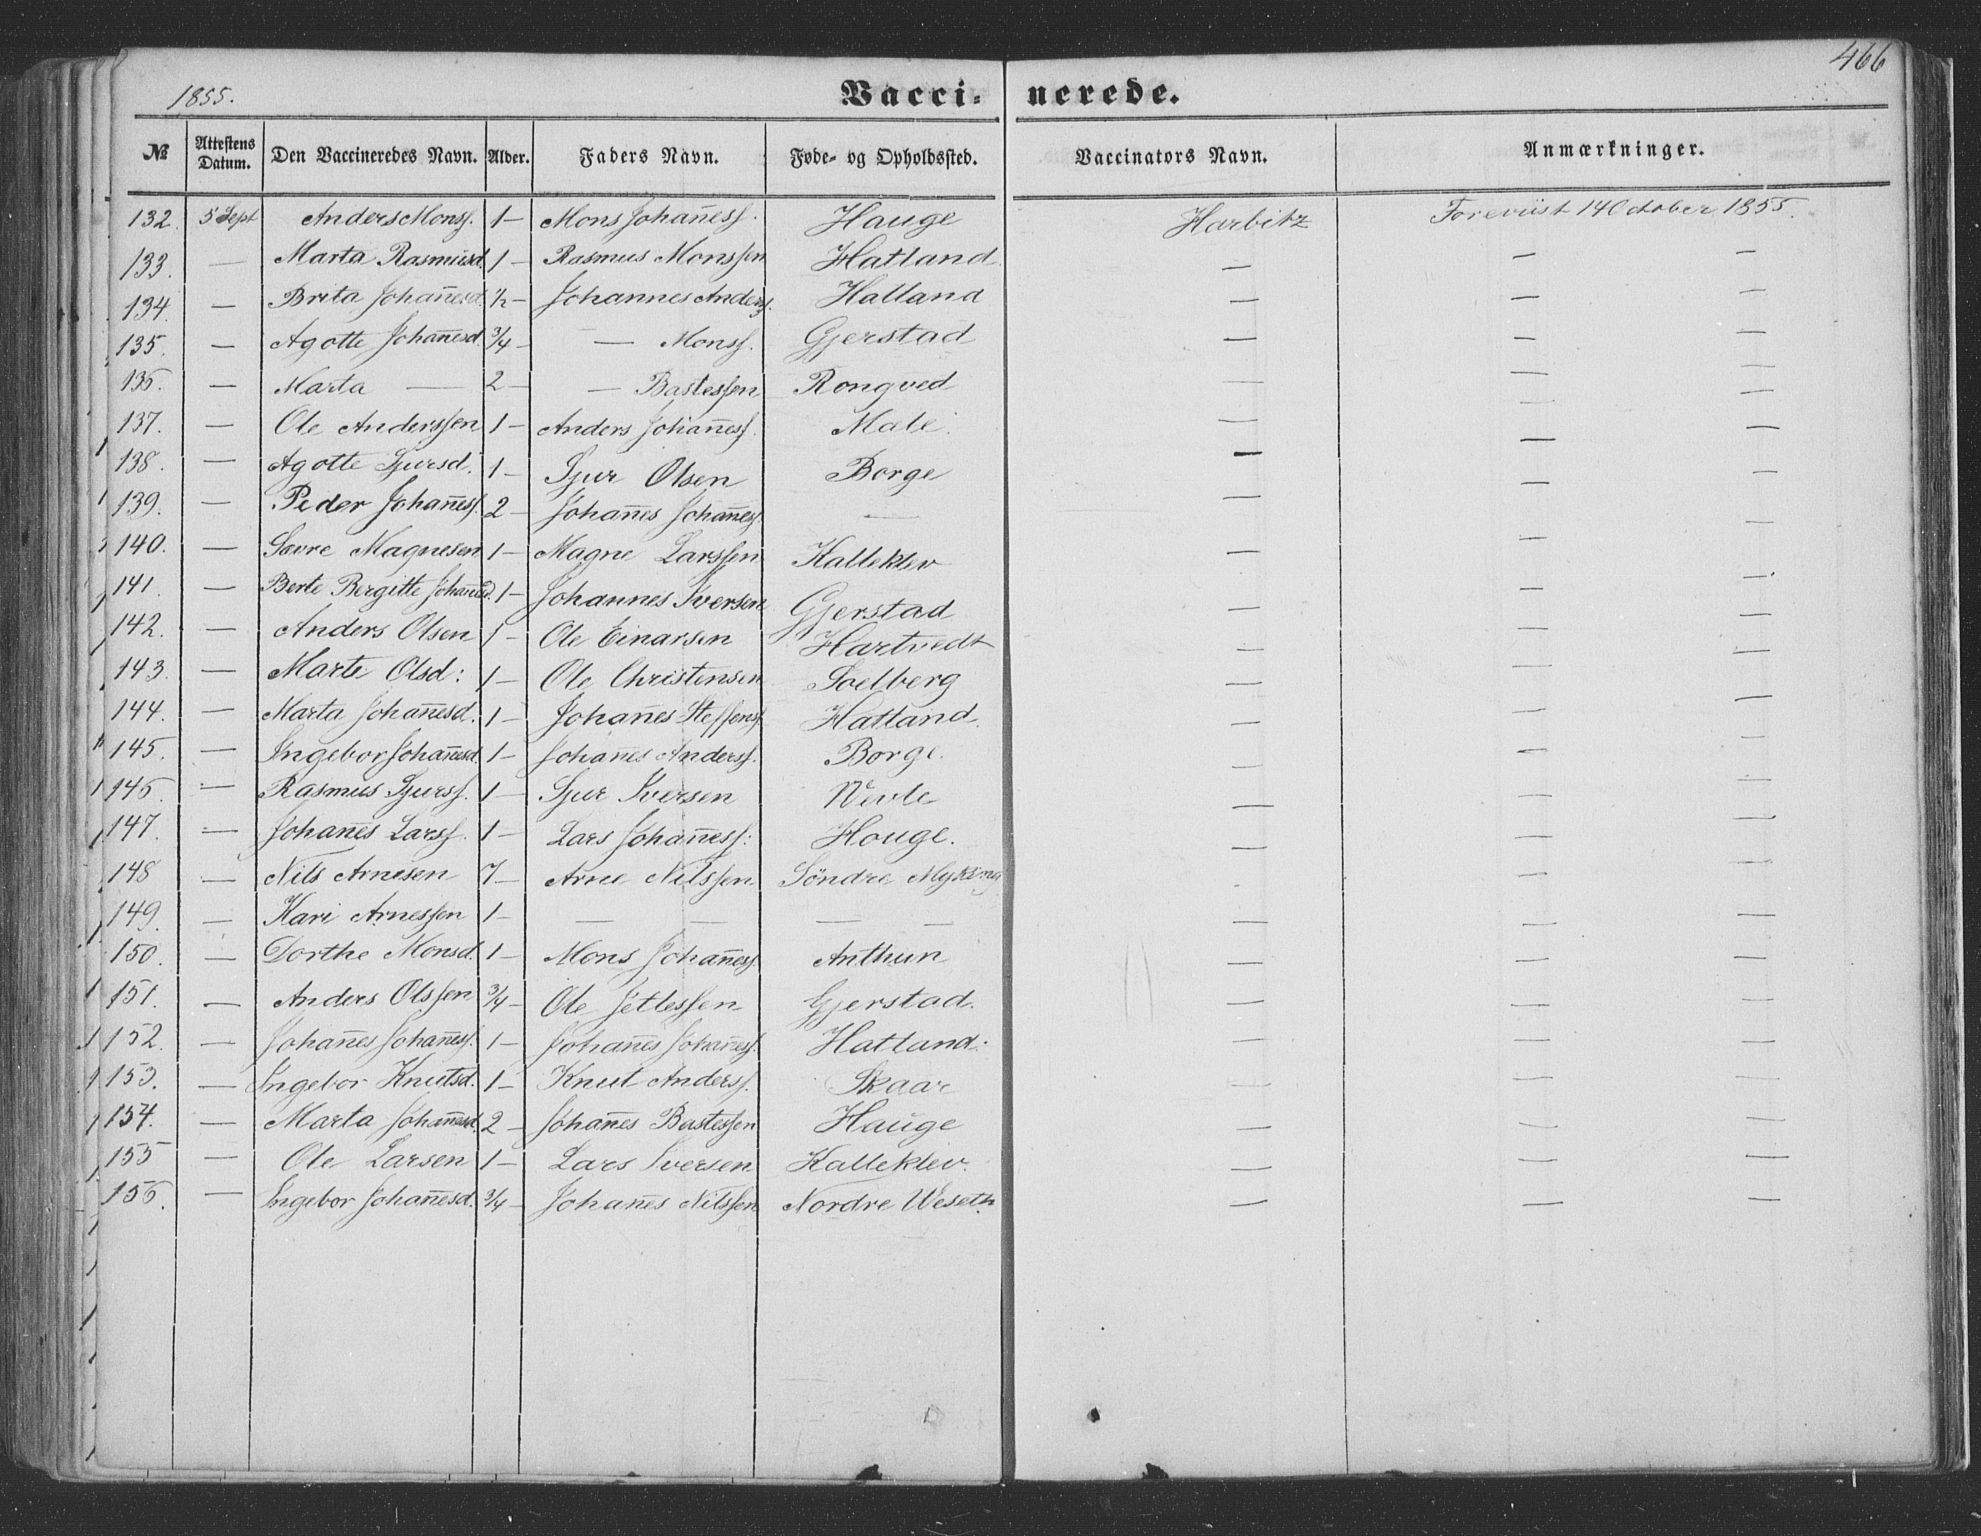 466
1855.
Vacci- nerede.
№ Attestens Datum. Den Vaccineredes Navn. Alder. Faders Navn. Føde- og Opholdssted. Vaccinators Navn. Anmærkninger.
132. 5 Sept Anders Monss. 1 – Mons Johan̄ess. Hauge Harbitz Foreviist 14 October 1855.
133. — Marta Rasmusd. 1 – Rasmus Monssen Hatland — — —
134. — Brita Johan̄esd. ½ – Johannes Anderss. Hatland — — —
135. — Agotte Johan̄esd. ¾ – — Monss. Gjerstad — — —
136. — Marta — 2 – — Bastessen Rongved — — —
137. — Ole Anderssen 1 – Anders Johan̄ess. Male — — —
138. — Agotte Sjursd. 1 – Sjur Olsen Borge — — —
139. — Peder Johan̄ess. 2 – Johan̄es Johan̄ess. — — — —
140. — Sævre Magnesen 1 – Magne Larssen Kalleklev — — —
141. — Berte Bergitte Johan̄esd. 1 – Johannes Iversen Gjerstad — — —
142. — Anders Olsen 1 – Ole Einarsen Hartvedt — — —
143. — Marte Olsd: 1 – Ole Christensen Soelberg — — —
144. — Marta Johan̄esd. 1 – Johan̄es Steffens. Hatland. — — —
145. — Ingebor Johan̄esd. 1 – Johan̄es Anderss. Borge. — — —
146. — Rasmus Sjurss. 1 – Sjur Iversen Nevle — — —
147. — Johan̄es Larss. 1 – Lars Johan̄ess: Houge. — — —
148 — Nils Arnesen 7 – Arne Nilssen Söndre Myking — — —
149. — Kari Arnessen 1 – — — — — — — —
150. — Dorthe Monsd. 1 – Mons Johan̄ess. Anthun — — —
151. — Anders Olssen ¾ – Ole Jetlessen Gjerstad. — — —
152. — Johan̄es Johan̄ess. 1 – Johan̄es Johan̄ess. Hatland. — — —
153. — Ingebor Knutsd. 1 – Knut Anderss. Skaar — — —
154. — Marta Johan̄esd. 2 – Johan̄es Bastessen Hauge — — —
155 — Ole Larsen 1 – Lars Iversen Kalleklev. — — —
156. — Ingebor Johan̄esd. ¾ – Johan̄es Nilssen Nordre Weseth — — —